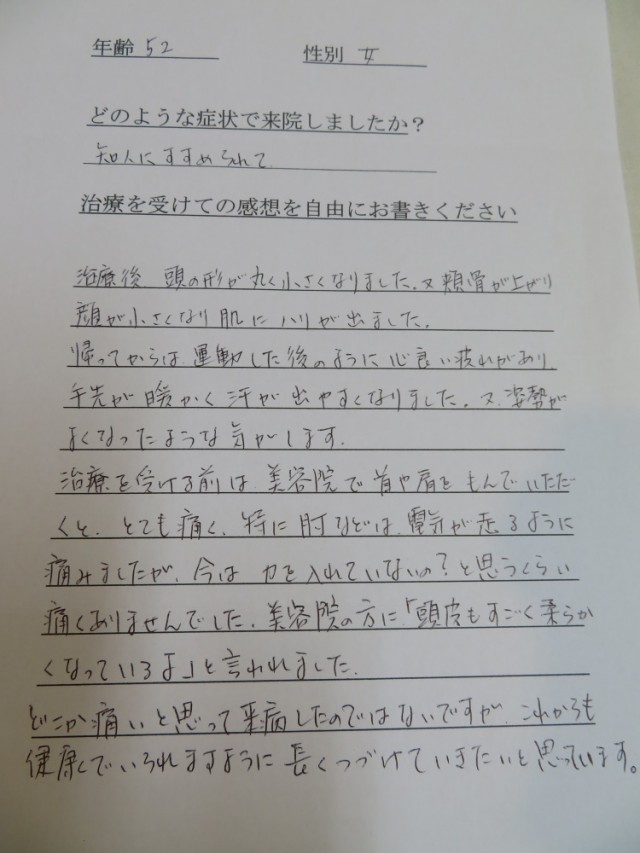 年齢 52 性別 女
どのような症状で来院しましたか？
知人にすすめられて
治療を受けての感想を自由にお書きください
治療後、頭の形が丸く小さくなりました。又頬骨が上がり
顔が小さくなり肌にハリが出ました。
帰ってからは、運動した後のように心良い疲れがあり
手先が暖かく汗が出やすくなりました。又、姿勢が
よくなったような気がします。
治療を受ける前は、美容院で首や肩をもんでいただ
くと、とても痛く、特に肘などは、電気が走るように
痛みましたが、今は力を入れていないの？と思うくらい
痛くありませんでした。美容院の方に「頭皮もすごく柔らか
くなっているよ」と言われました。
どこか痛いと思って来病したのではないですが、これからも
健康でいられますように長くつづけていきたいと思っています。